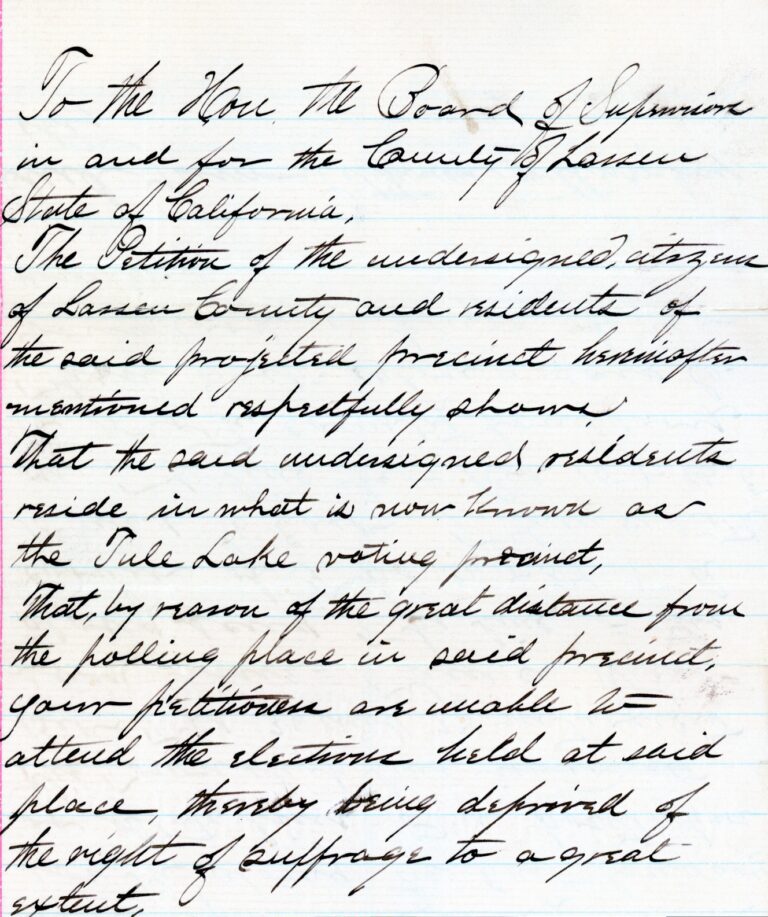 To the Hon. the Board of Supervisors
in and for the County of Lassen
State of California.
The Petition of the undersigned, citizens
of Lassen County and residents of
the said projected precinct hereinafter
mentioned respectfully shows
That the said undersigned residents
reside in what is now known as
the Tule Lake voting precinct,
That, by reason of the great distance from
the polling place in said precinct,
your petitioners are unable to
attend the elections held at said
place, thereby being deprived of
the right of suffrage to a great
extent,